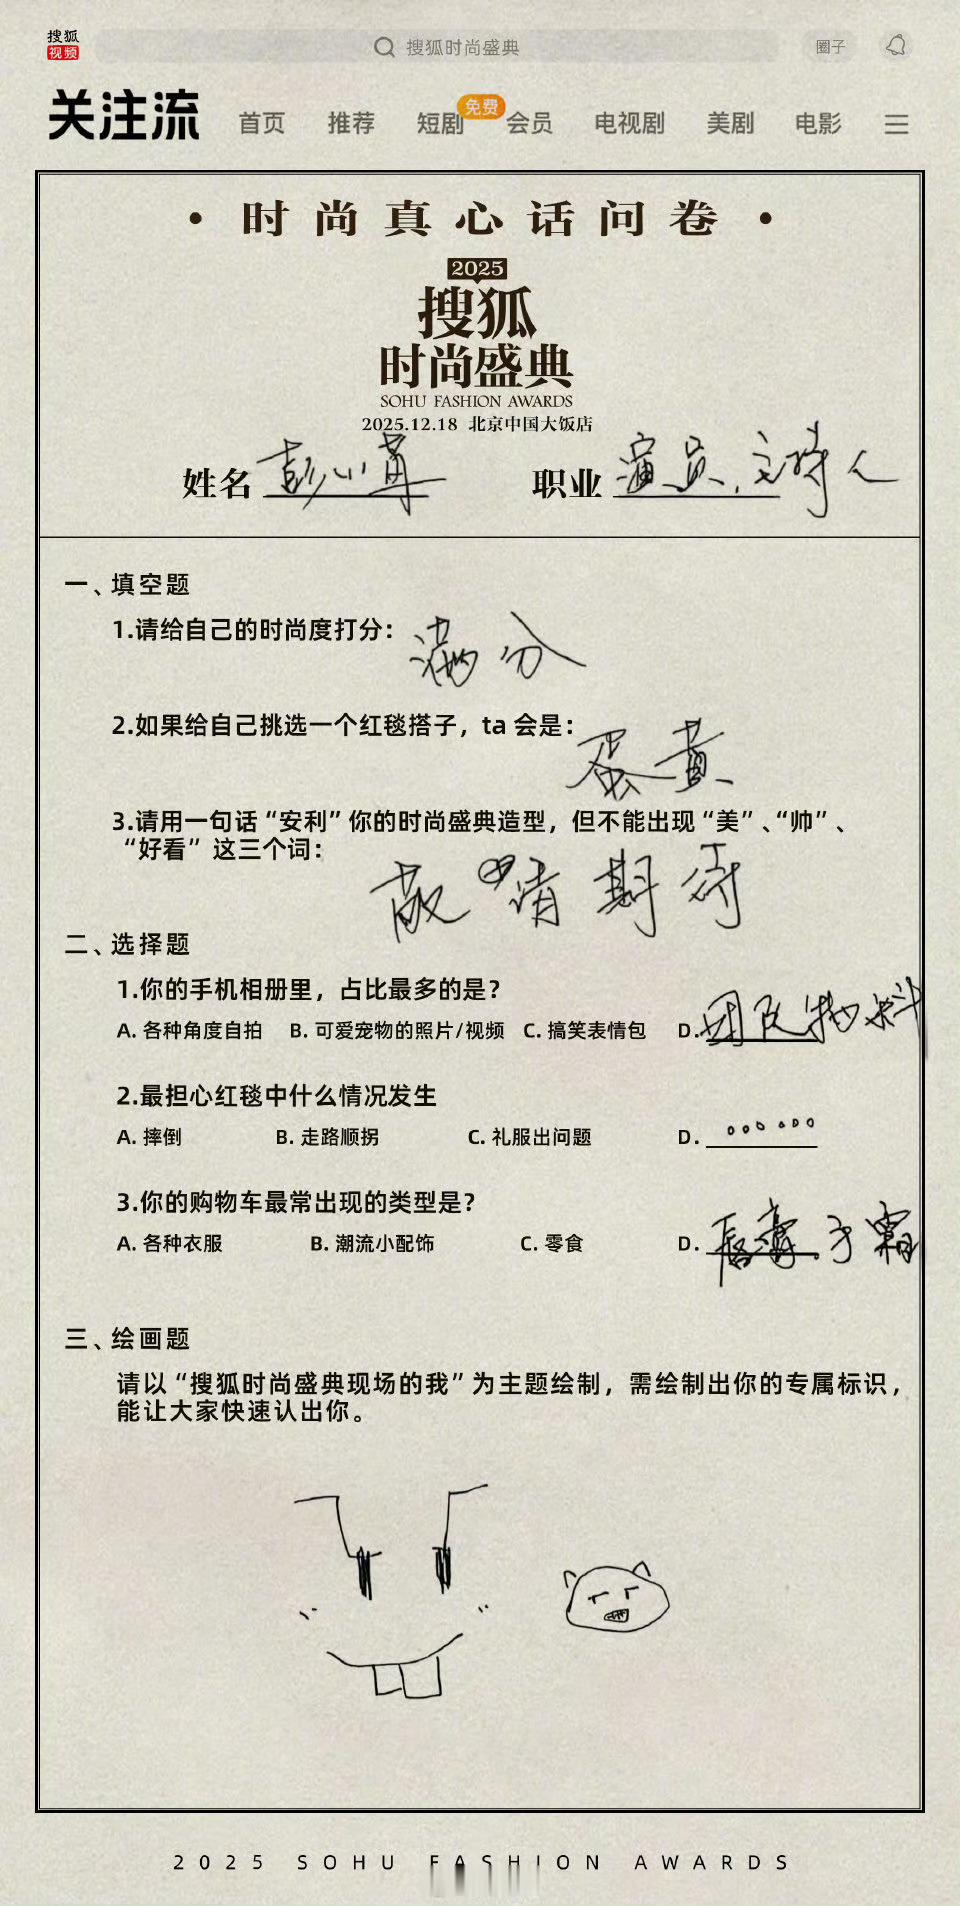 搜狐
视频
搜狐时尚盛典
圈子
关注流 首页 推荐 短剧 免费 会员 电视剧 美剧 电影
·时尚真心话问卷·
2025
搜狐
时尚盛典
SOHU FASHION AWARDS
2025.12.18 北京中国大饭店
姓名 彭小苒 职业 演员、主持人
一、填空题
1.请给自己的时尚度打分： 满分
2.如果给自己挑选一个红毯搭子，ta 会是： 蛋黄
3.请用一句话“安利”你的时尚盛典造型，但不能出现“美”、“帅”、
“好看” 这三个词：
敬请期待
二、选择题
1.你的手机相册里，占比最多的是？
A. 各种角度自拍 B. 可爱宠物的照片/视频 C. 搞笑表情包 D. 团队物料
2.最担心红毯中什么情况发生
A. 摔倒 B. 走路顺拐 C. 礼服出问题 D. 。。。。。。
3.你的购物车最常出现的类型是？
A. 各种衣服 B. 潮流小配饰 C. 零食 D. 唇膏、手霜
三、绘画题
请以“搜狐时尚盛典现场的我”为主题绘制，需绘制出你的专属标识，
能让大家快速认出你。
2025 SOHU FASHION AWARDS